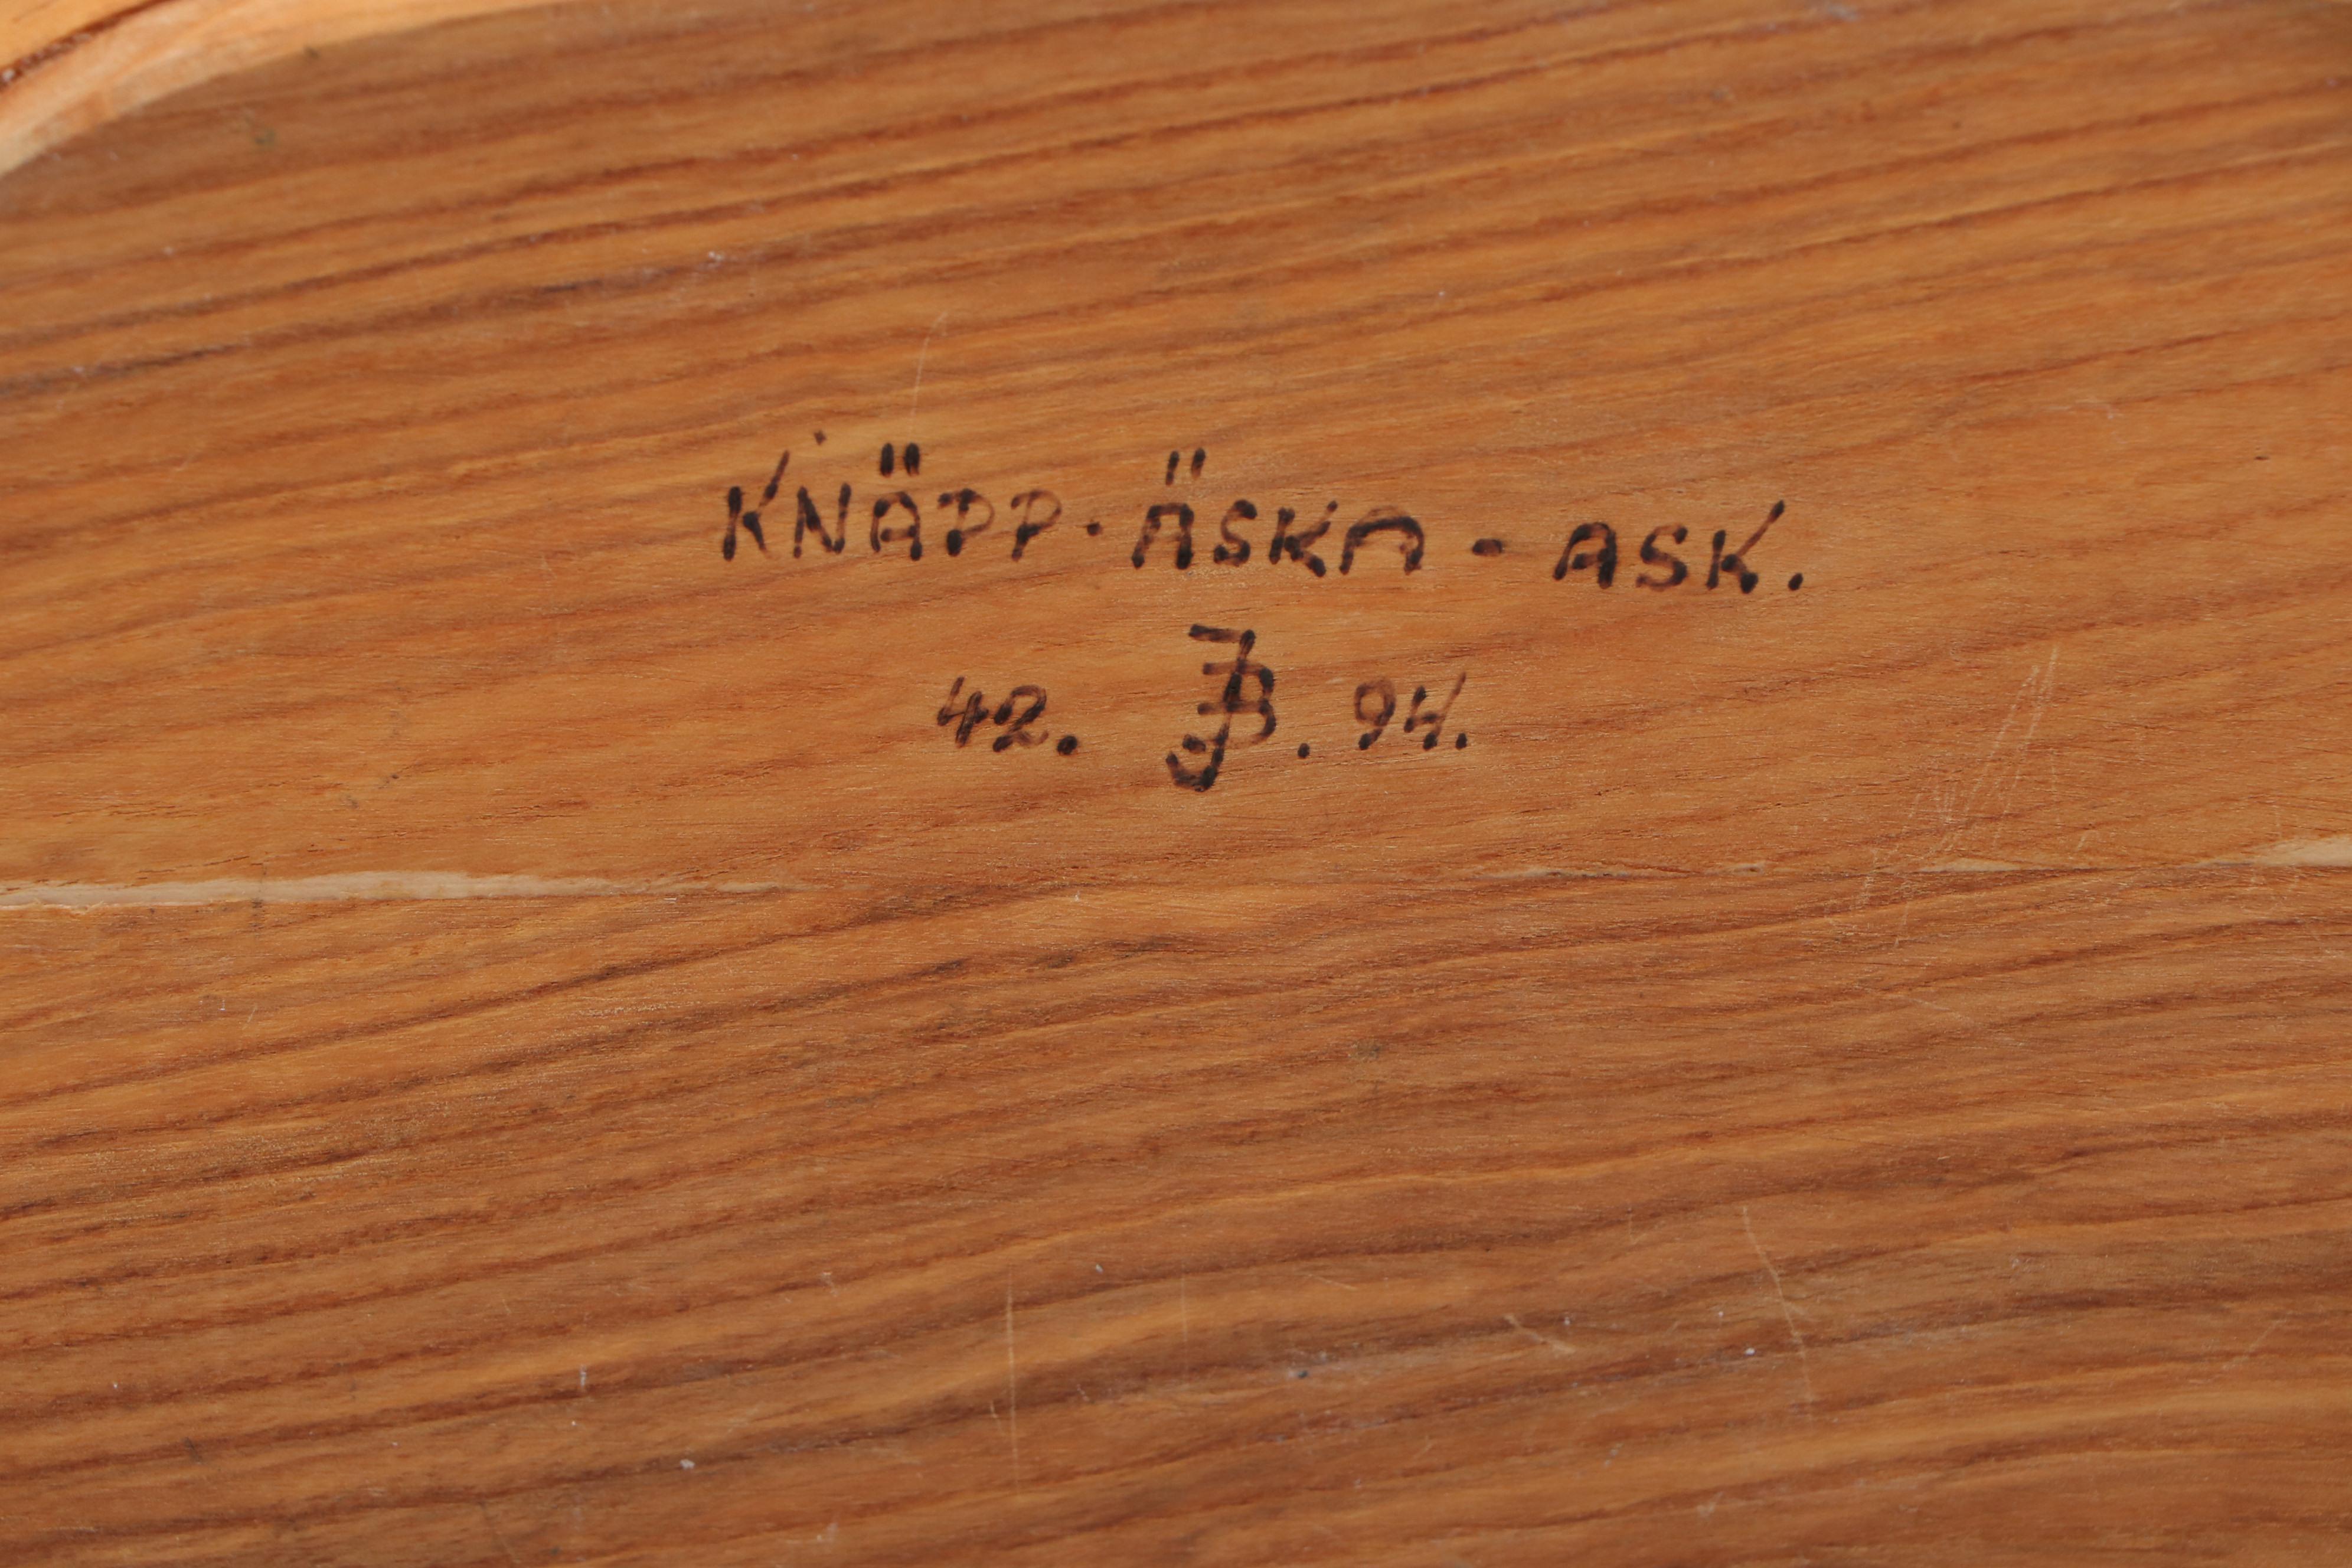 KNÄPP·ÄSKA - ASK.
42. JB. 94.